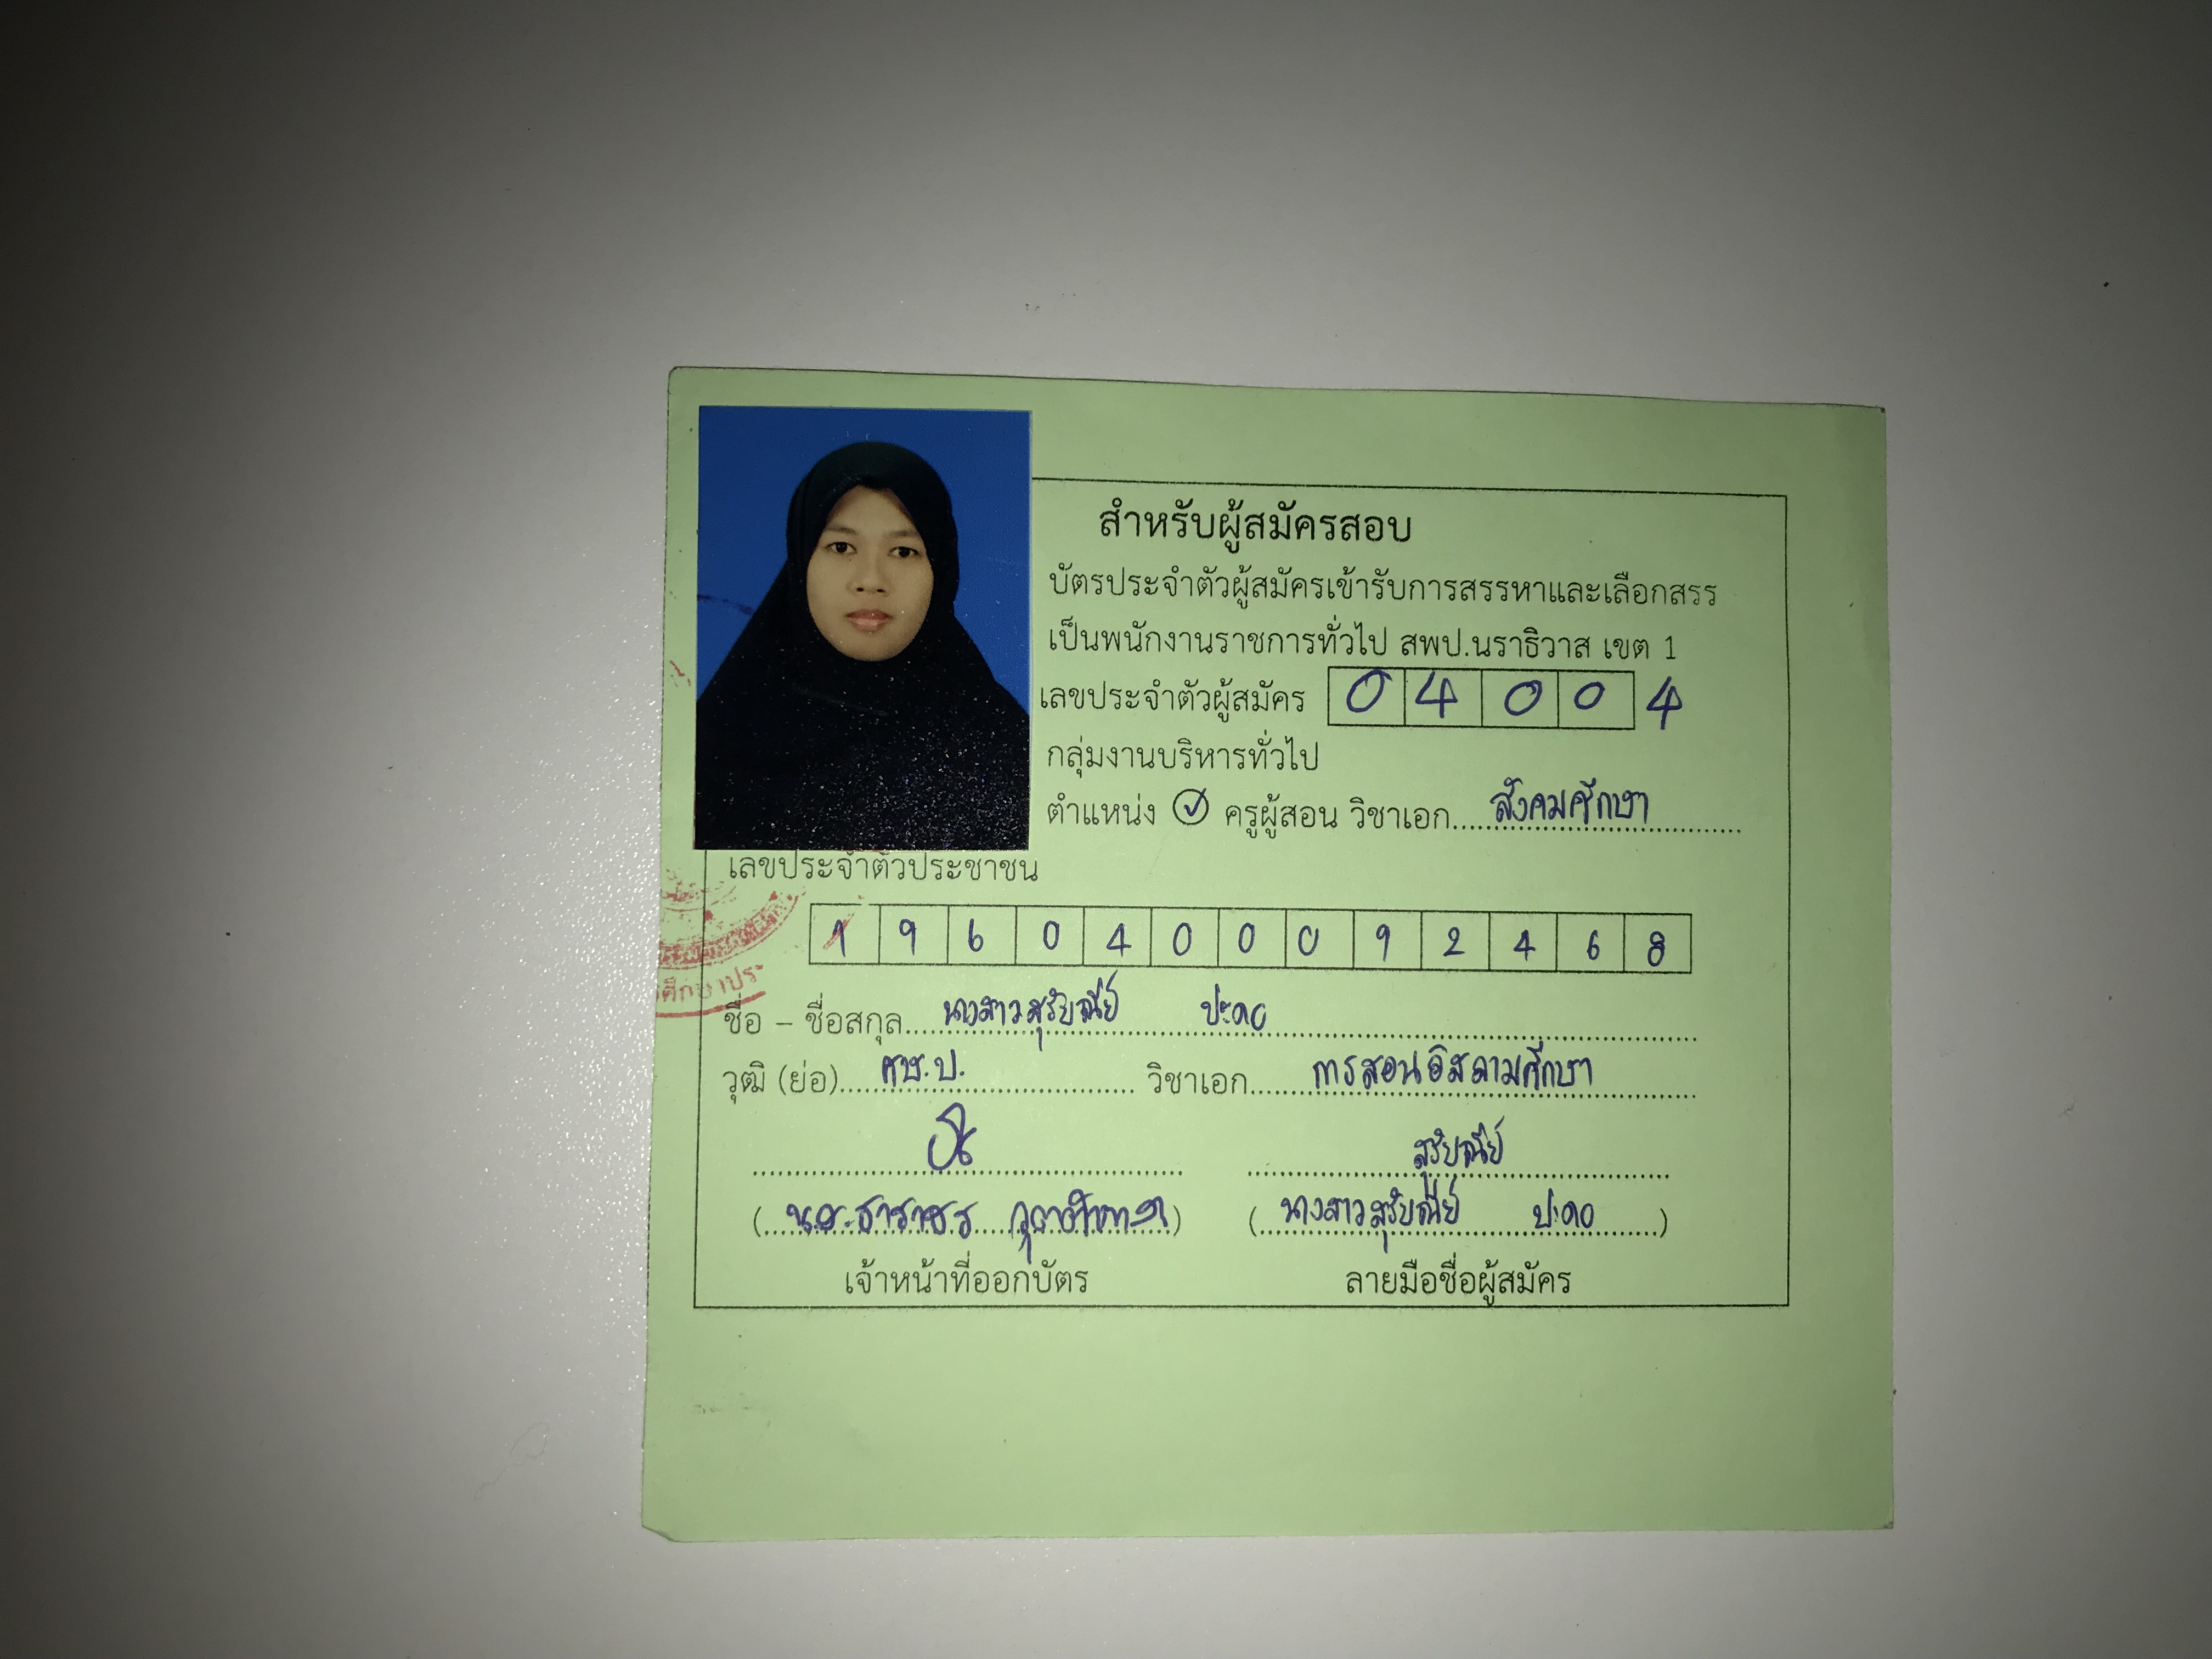 สำหรับผู้สมัครสอบ
บัตรประจำตัวผู้สมัครเข้ารับการสรรหาและเลือกสรร
เป็นพนักงานราชการทั่วไป สพป.นราธิวาส เขต 1
เลขประจำตัวผู้สมัคร 0 4 0 0 4
กลุ่มงานบริหารทั่วไป
ตำแหน่ง ครูผู้สอน วิชาเอก....สังคมศึกษา
เลขประจำตัวประชาชน
1 9 6 0 4 0 0 0 9 2 4 6 8
ศึกษาประ
ชื่อ - ชื่อสกุล....นางสาวสุรัยณีย์ ปะดอ
วุฒิ (ย่อ)....ศษ.ป. วิชาเอก....การสอนอิสลามศึกษา
สุรัยณีย์
(น.ส. ) (นางสาวสุรัยณีย์ ปะดอ)
เจ้าหน้าที่ออกบัตร ลายมือชื่อผู้สมัคร